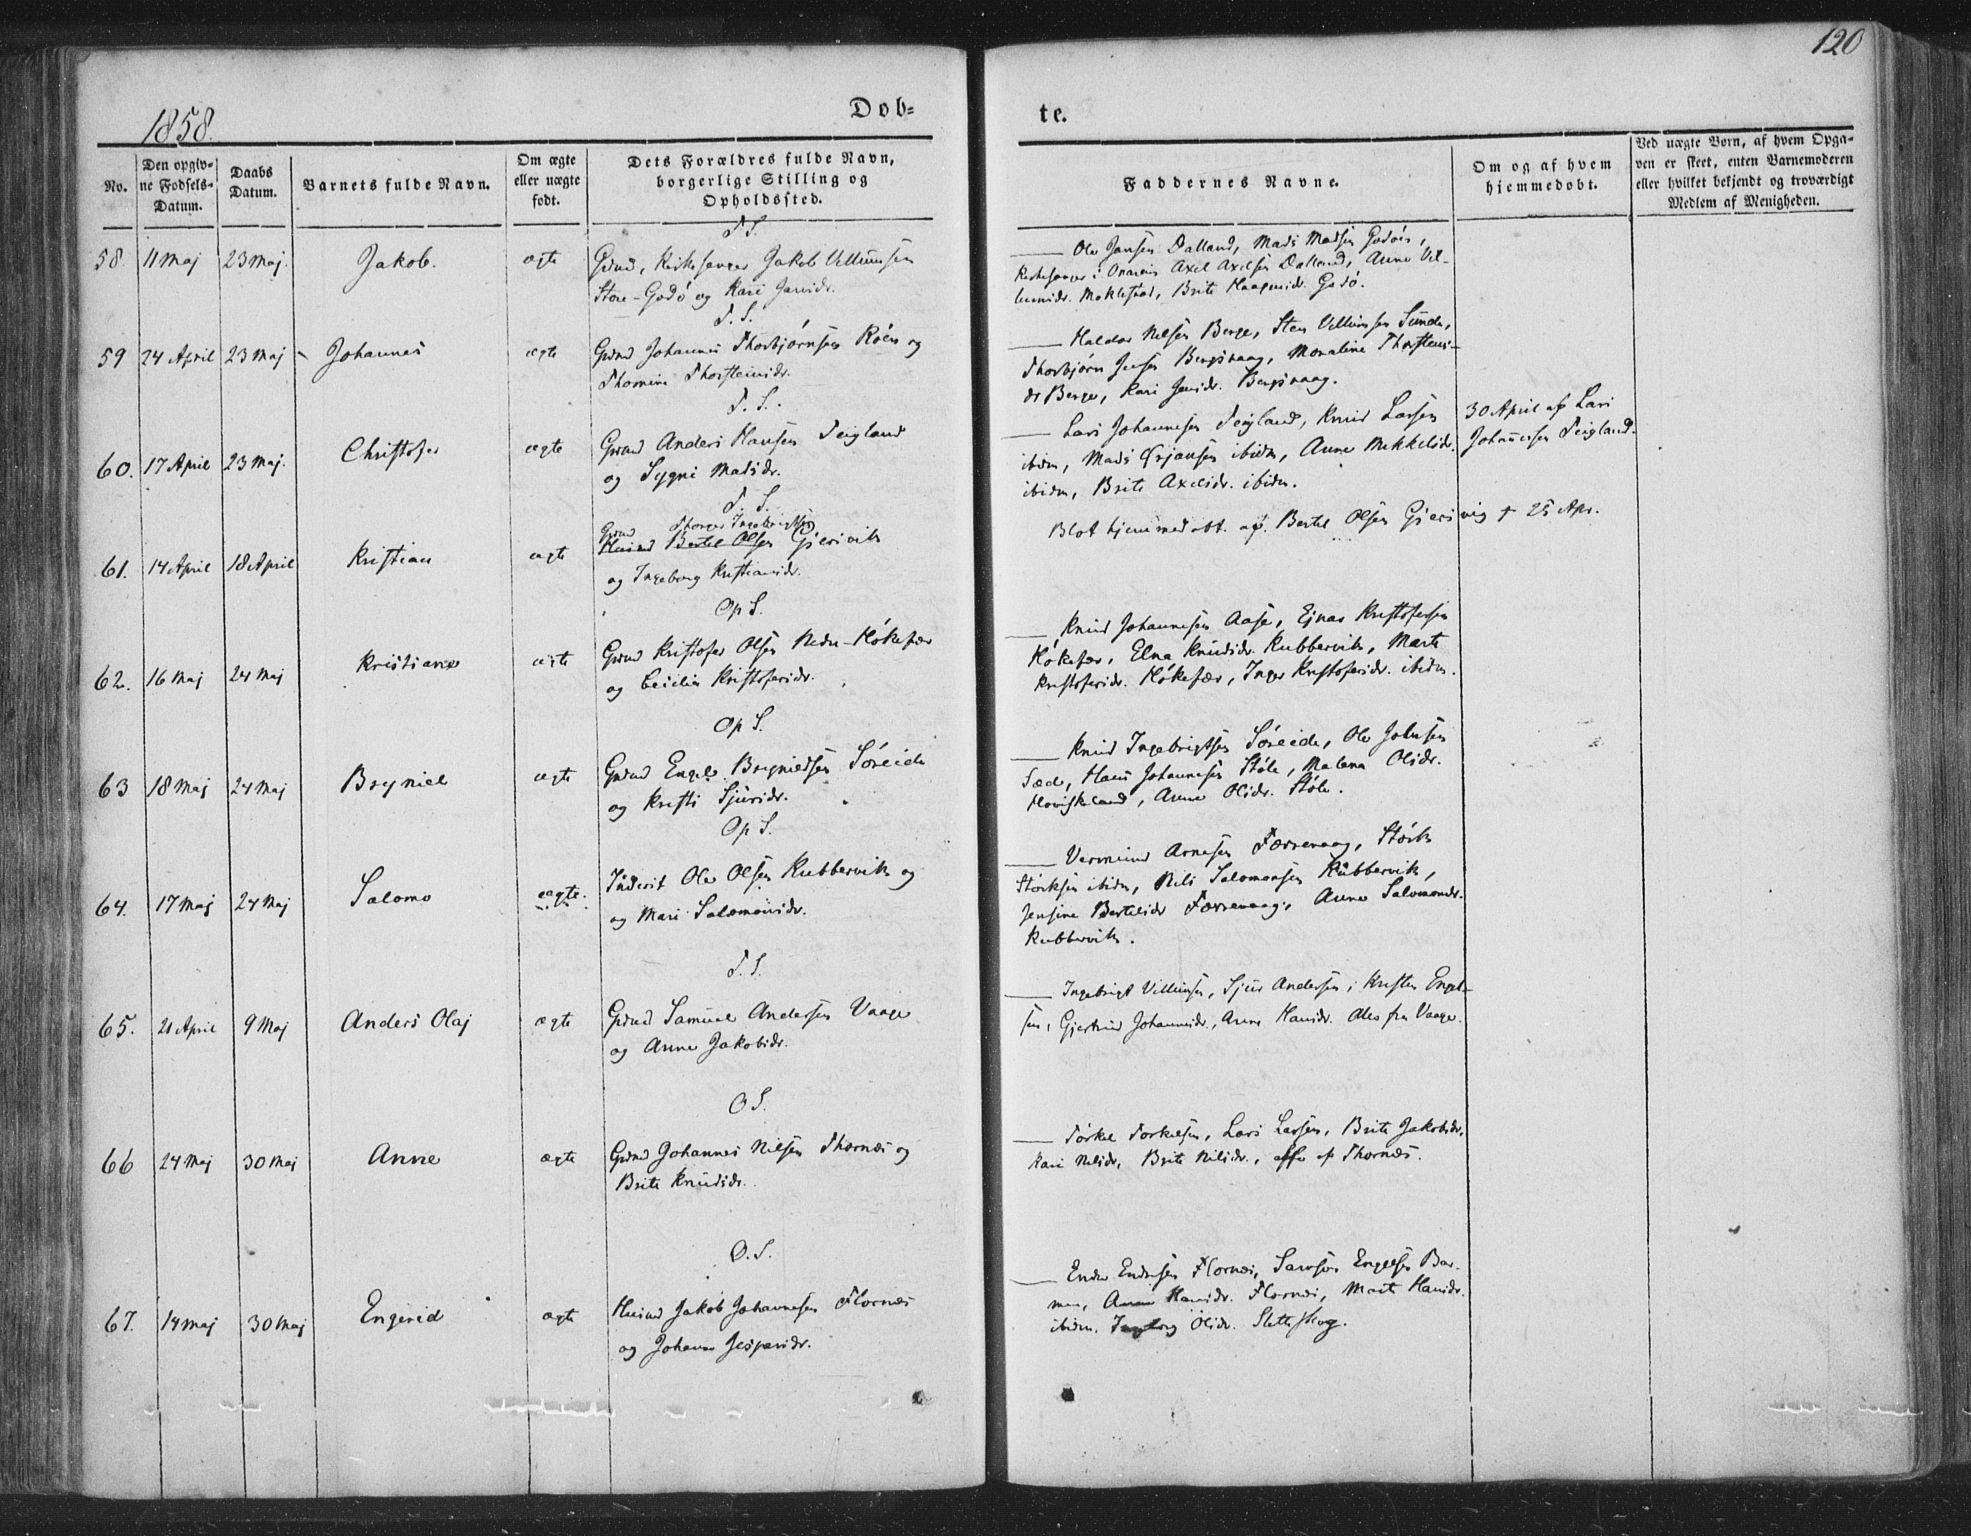 120
1858.
Døb-
te.
No.
Den opgiv-
ne Fødsels-
Datum.
Daabs
Datum.
Barnets fulde Navn.
Om ægte
eller uægte
født.
Dets Forældres fulde Navn,
borgerlige Stilling og
Opholdssted.
Faddernes Navne.
Om og af hvem
hjemmedøbt.
Ved uægte Børn, af hvem Opga-
ven er skeet, enten Barnemoderen
eller hvilket bekjendt og troværdigt
Medlem af Menigheden.
T. S.
58. 11 Maj 23 Maj. Jakob. ægte
Grmd, Kirkesanger Jakob Villumsen
Store-Godø og Kari
Ole Jansen Dalland, Mads Madsen
Kirkesanger i Axel Axelsen Dalland, Anne Vil-
lumsdr. Brite Haagensdr. Godø.
T. S.
59 24 April 23 Maj Johannes ægte
Grmd Johannes Thorbjørnsen Røen og
Thomine Thorsteinsdr.
Haldor Nilsen Berge, Sten Villumsen Sunde,
Thorbjørn Jensen Bergsvaag, Monsline Thorsteins-
dr Berge, Kari Jensdr. Bergsvaag.
T. S.
60. 17 April 23 Maj. Christofer ægte
Grmd Anders Hansen Teigland
og Sygni Madsdr.
Lars Johannesen Teigland, Knud Larsen
ibidm, Mads Ørjansen ibidm, Anne Mikkelsdr.
ibidm, Brite Axelsdr. ibidm.
30 April af Lars
Johannesen Teigland.
T. S.
61. 14 April 18 April Kristian ægte
Grmd Thorger Ingebrigtsen
Husmd Bertel Olsen Gjersvik
og Ingeborg Kristiansdr.
Blot hjemmedøbt. af. Bertel Olsen Gjersvig † 25 Apr.
Op S.
62. 16 Maj 24 Maj Kristiane ægte
Grmd Kristofer Olsen Nedre-Høkefær
og Cecilia Kristofersdr.
Knud Johannesen Aase, Ejnar Kristofersen
Høkefær, Elna Knudsdr. Rubbervik, Marte
Kristofersdr. Høkefær, Inger Kristofersdr. ibidm.
Op S.
63 18 Maj 24 Maj Brynild ægte
Grmd Engel Brynildsen Søreide
og Kristi Sjursdr.
Knud Ingebrigtsen Søreide, Ole Johnsen
Sæd, Hans Johannesen Støle, Malena Olsdr.
Anne Olsdr. Støle.
Op S.
64. 17 Maj 24 Maj Salomo ægte.
Inderst Ole Olsen Rubbervik og
og Mari Salomonsdr.
Vermund Arnesen Færrevaag, Størk
Størksen ibidm, Nils Salomonsen Rubbervik,
Jensine Bertelsdr Færrevaag, Anne Salomonsdr.
Rubbervik.
T. S.
65. 21 April 9 Maj Anders Olaj ægte
Grmd Samuel Andersen Vaage
og Anne Jakobsdr.
Ingebrigt Villumsen, Sjur Andersen, Kristen Engel-
sen, Gjertrud Johannesdr., Anne Hansdr. Alle fra Vaage.
O S.
66 24 Maj 30 Maj Anne ægte
Grmd Johannes Nilsen Thornæs og
Brite Knudsdr.
Tørkel Torkelsen, Lars Larsen, Brite Jakobsdr,
Kari Nilsdr, Brite Nilsdr., alle af Thornæs.
O. S.
67. 14 Maj 30 Maj Engerid ægte
Husmd Jakob Johannesen Flornæs
og Johanne Jespersdr.
Endre Endresen Flornæs, Samson Engelsen Bar-
men, Anne Hansdr. Flornæs, Marte Hansdr.
ibidm. Ingeborg Olsdr. Sletteskog.